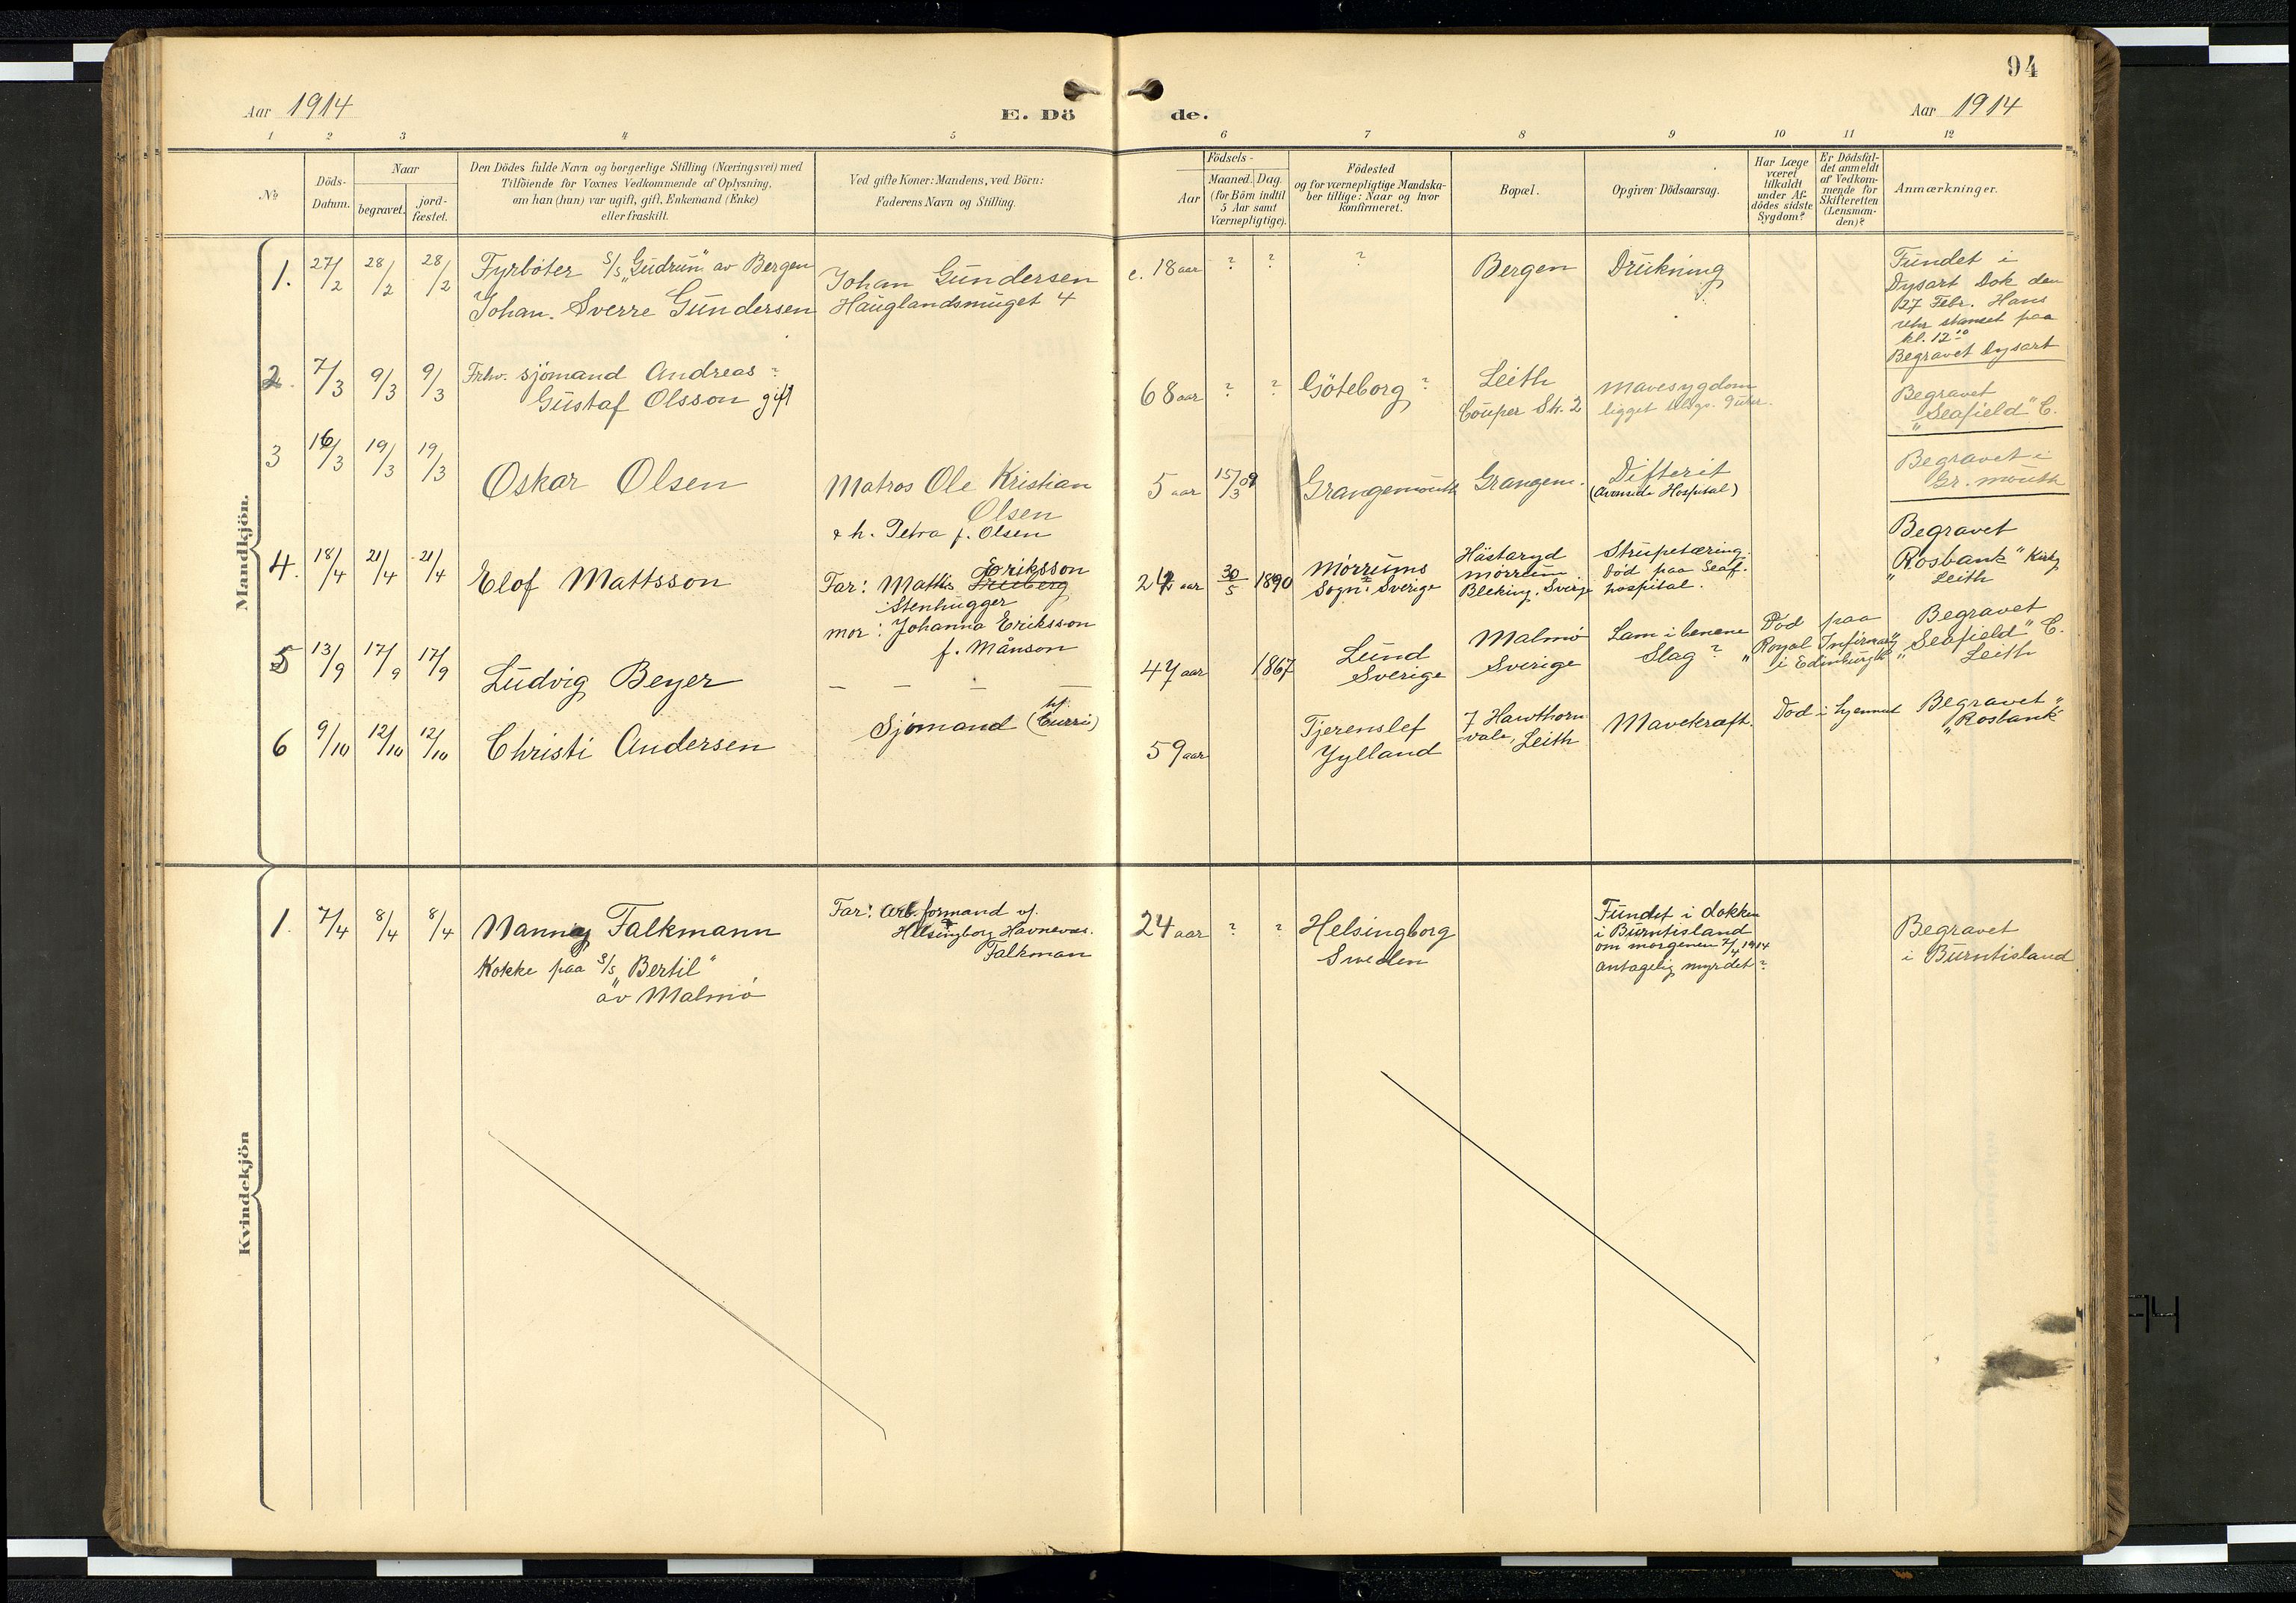 94
Aar 1914
E. Dö
de.
Aar 1914
1 2 3 4 5 6 7 8 9 10 11 12
No
Döds-
Datum.
Naar
begravet.
jord-
fæstet.
Den Dödes fulde Navn og borgerlige Stilling (Næringsvei) med
Tilföiende for Voxnes Vedkommende af Oplysning,
om han (hun) var ugift, gift, Enkemand (Enke)
eller fraskilt.
Ved gifte Koner: Mandens, ved Börn:
Faderens Navn og Stilling.
Födsels-
Aar
Maaned. Dag.
(for Börn indtil
5 Aar samt
Værnepligtige).
Födested
og for værnepligtige Mandska-
ber tillige: Naar og hvor
konfirmeret.
Bopæl.
Opgiven Dödsaarsag.
Har Læge
været
tilkaldt
under Af-
dödes sidste
Sygdom?
Er Dödsfal-
det anmeldt
af Vedkom-
mende for
Skifteretten
(Lensman-
den)?
Anmærkninger.
Mandkjön.
1. 27/2 28/2 28/2
Fyrböter S/S „Gudrun" av Bergen
Johan. Sverre Gundersen
Johan Gundersen
Hauglandsmuget 4
c. 18 aar ? ? ?
Bergen
Drukning
Fundet i
Dysart Dok den
27 Febr. Hans
uhr stanset paa
kl. 12
Begravet Dysart
2. 7/3 9/3 9/3
Frhv. sjömand Andreas ?
Gustaf Olsson gift
68 aar ? ?
Göteborg ?
Leith
Couper Str. 2
Mavesygdom
ligget
Begravet
„Seafield" C.
3 16/3 19/3 19/3
Oskar Olsen
Matros Ole Kristian
Olsen
& h. Petra f. Olsen
5 aar 15/3 09
Grangemouth
Grangem.
Difterit
Hospital)
Begravet i
Gr. mouth
4. 18/4 21/4 21/4
Elof Mattsson
Eriksson
Far: Mattis
Stenhugger
mor: Johanna Eriksson
f. Månson
24 aar 30/5 1890
Mörrums
Sogn: Sverige
Hästaryd
Mörrum
Bleking. Sverige
Strupetæring.
Död paa Seaf.
hospital.
Begravet
„Rosbank" Kirkg
Leith
5 13/9 17/9 17/9
Ludvig Beyer
— — — —
47 aar 1867
Lund
Sverige
Malmö
Sverige
Lam i benene
Slag ?
Död paa
„Royal Infirmary"
i Edinburgh
Begravet
„Seafield" C.
Leith
6 9/10 12/10 12/10
Christi Andersen
Sjömand (Curri)
59 aar
Tjerenslef
Jylland
7 Hawthorn
vale, Leith
Mavekræft.
Död i hjemmet
Begravet
„Rosbank"
Kvindekjön
1. 7/4 8/4 8/4
Nanny Falkmann
Kokke paa S/S „Bertil"
av Malmö
Far: Arb. formand v/.
Helsingborg Havnevæs.
Falkman
24 aar ? ?
Helsingborg
Sweden
Fundet i dokken
i Burntisland
om morgenen 7/4 1914
antagelig myrdet ?
Begravet
i Burntisland